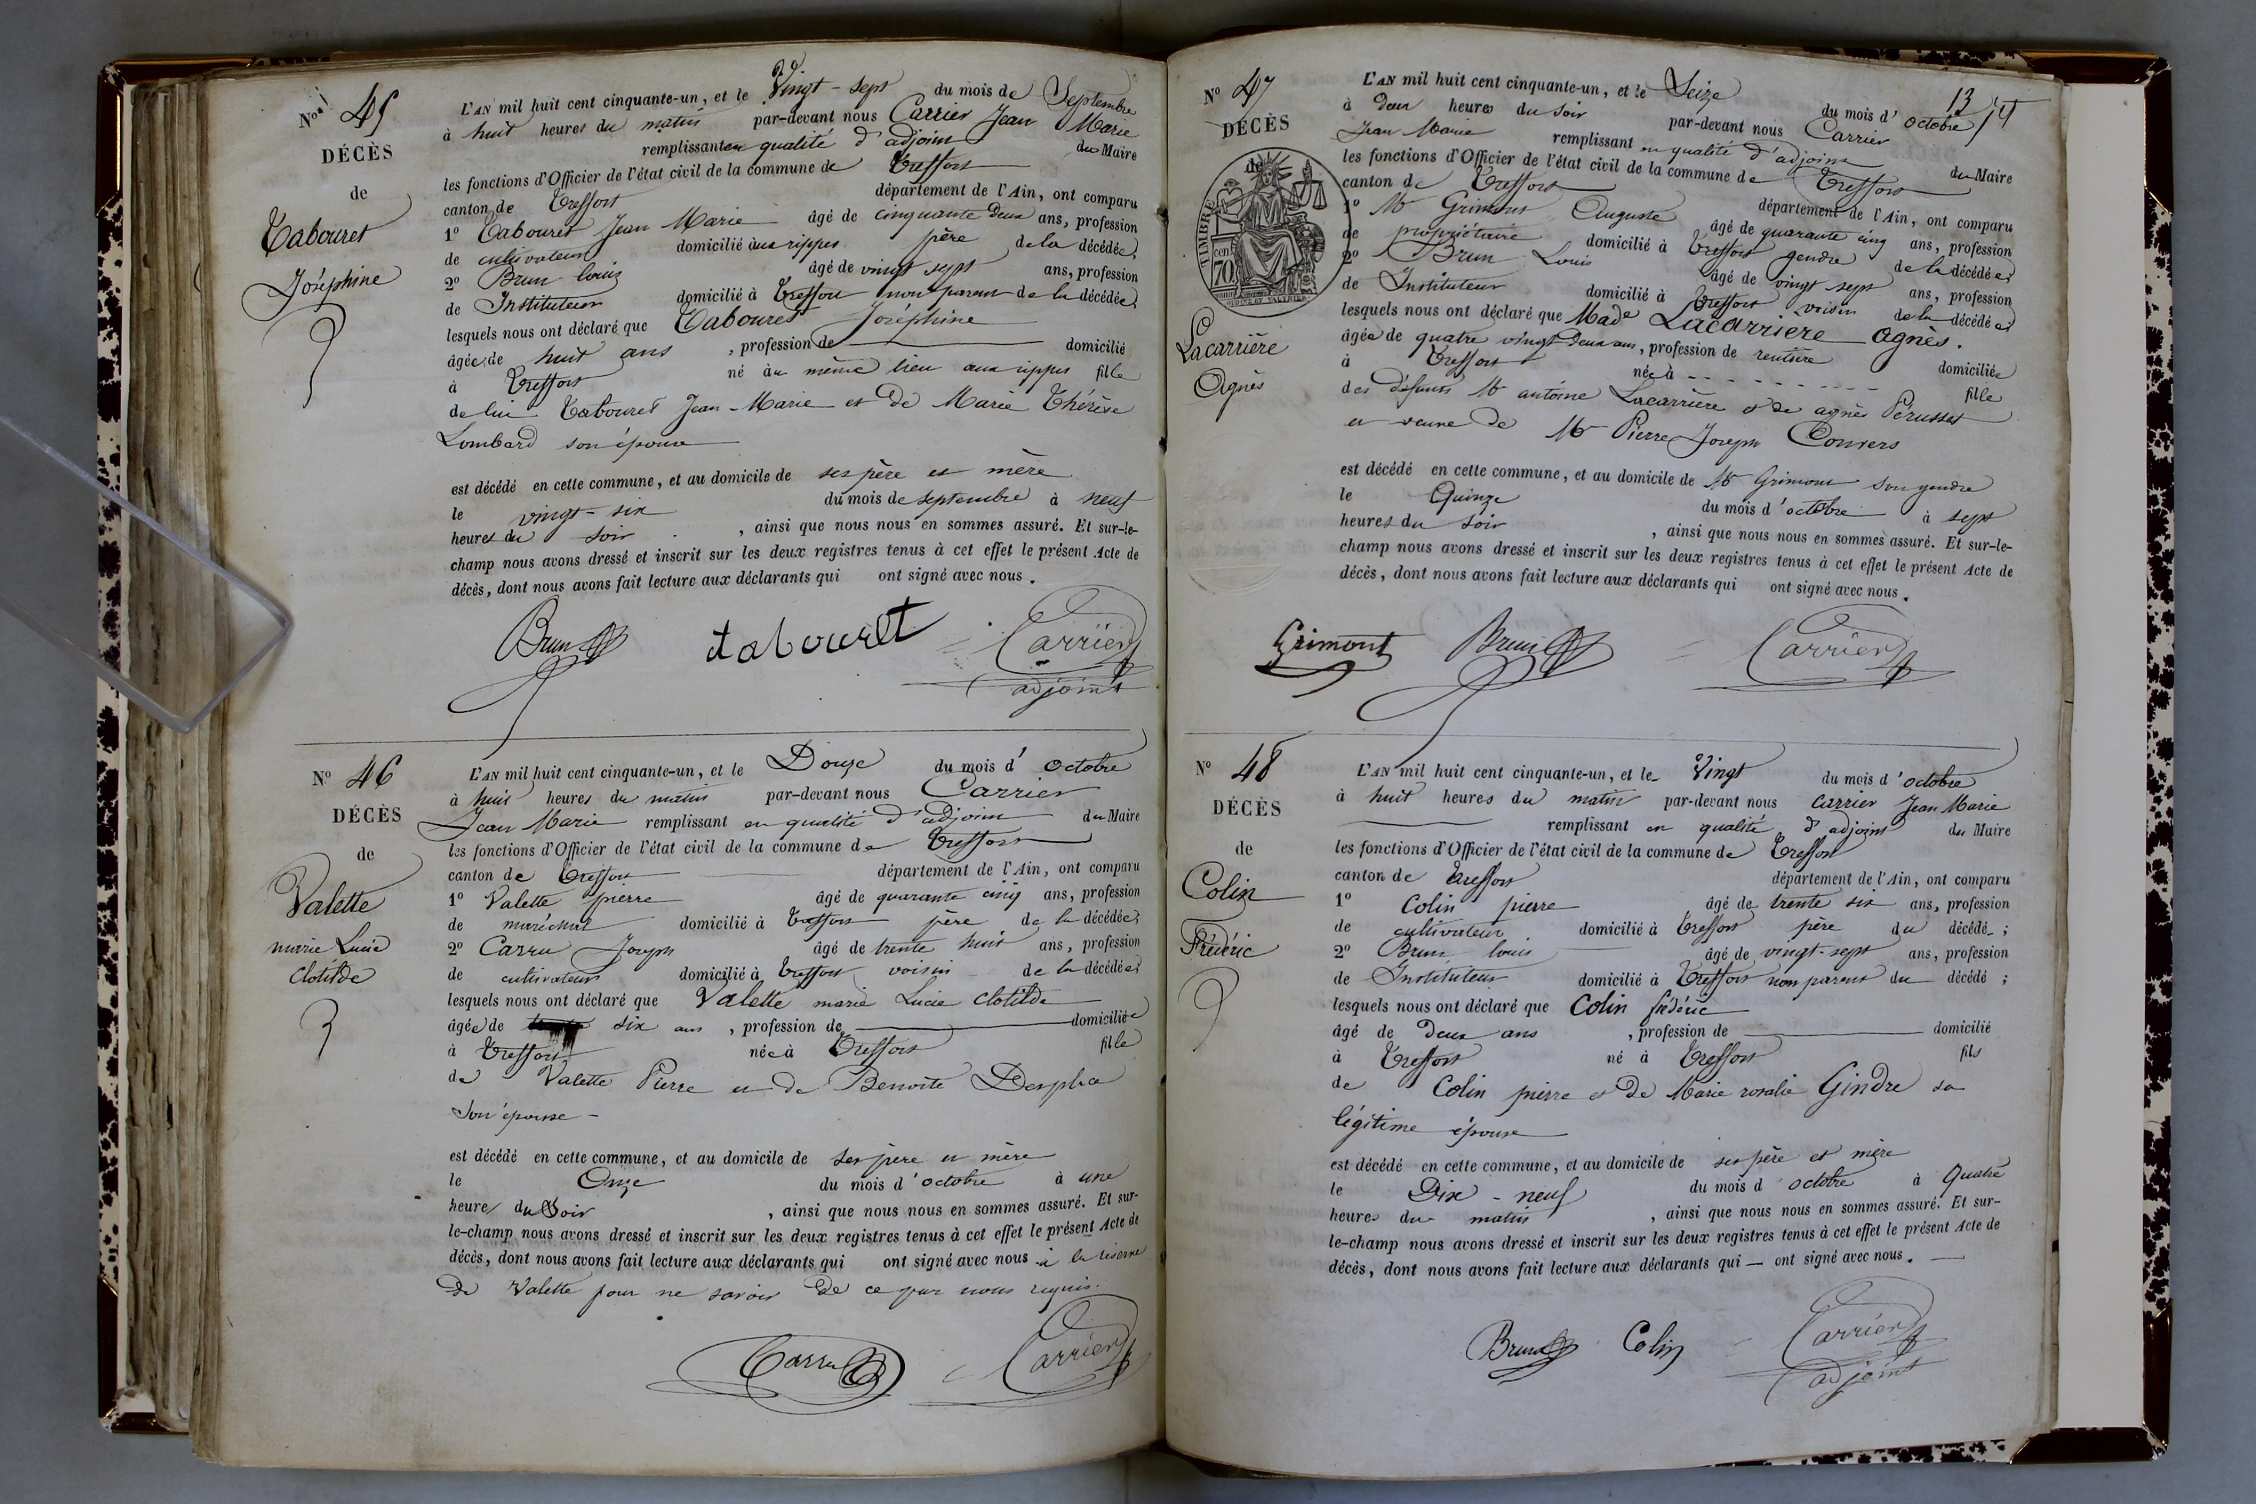 No 45
DÉCÈS
de
Tabouret
Joséphine
L'AN mil huit cent cinquante-un, et le Vingt-sept du mois de Septembre
à huit heures du matin par-devant nous Carrier Jean Marie
remplissant en qualité d'adjoint du Maire
les fonctions d'Officier de l'état civil de la commune de Treffort
canton de Treffort département de l'Ain, ont comparu
1º Tabouret Jean Marie âgé de cinquante deux ans, profession
de cultivateur domicilié aux rippes père de la décédée;
2º Brun louis âgé de vingt sept ans, profession
de Instituteur domicilié à Treffort non parent de la décédée;
lesquels nous ont déclaré que Tabouret Joséphine
âgée de huit ans, profession de domicilié
à Treffort né au même lieu aux rippes fille
de lui Tabouret Jean-Marie et de Marie Thérèse
Lombard son épouse
est décédé en cette commune, et au domicile de ses père et mère
le vingt-six du mois de septembre à neuf
heures du soir, ainsi que nous nous en sommes assuré. Et sur-le-
champ nous avons dressé et inscrit sur les deux registres tenus à cet effet le présent Acte de
décès, dont nous avons fait lecture aux déclarants qui ont signé avec nous.
Brun tabouret Carrier
adjoint
No 46
DÉCÈS
de
Valette
marie Lucie
Clotilde
L'AN mil huit cent cinquante-un, et le Douze du mois d'octobre
à huit heures du matin par-devant nous Carrier
Jean Marie remplissant en qualité d'adjoint du Maire
les fonctions d'Officier de l'état civil de la commune de Treffort
canton de Treffort département de l'Ain, ont comparu
1º Valette pierre âgé de quarante cinq ans, profession
de maréchal domicilié à Treffort père de la décédée;
2º Carru Joseph âgé de trente huit ans, profession
de cultivateur domicilié à Treffort voisin de la décédée;
lesquels nous ont déclaré que Valette marie Lucie Clotilde
âgée de six ans, profession de domiciliée
à Treffort née à Treffort fille
de Valette Pierre et de Benoite
son épouse -
est décédé en cette commune, et au domicile de ses père et mère
le Onze du mois d'octobre à une
heure du Soir, ainsi que nous nous en sommes assuré. Et sur-
le-champ nous avons dressé et inscrit sur les deux registres tenus à cet effet le présent Acte de
décès, dont nous avons fait lecture aux déclarants qui ont signé avec nous à la réserve
de Valette pour ne savoir de ce par nous requis.
Carru Carrier
13
No 47
DÉCÈS
de
TIMBRE
70
Lacarrière
Agnès
L'AN mil huit cent cinquante-un, et le Seize du mois d'octobre
à deux heures du soir par-devant nous Carrier
Jean Marie remplissant en qualité d'adjoint du Maire
les fonctions d'Officier de l'état civil de la commune de Treffort
canton de Treffort département de l'Ain, ont comparu
1º Mr Grimont Auguste âgé de quarante cinq ans, profession
de propriétaire domicilié à Treffort gendre de la décédée;
2º Brun Louis âgé de vingt sept ans, profession
de Instituteur domicilié à Treffort voisin de la décédée;
lesquels nous ont déclaré que Made Lacarriere agnès.
âgée de quatre vingt deux ans, profession de rentière domiciliée
à Treffort née à - - - - - - - - - fille
des défunts Mr antoine Lacarrière et de agnès Pérusset
et veuve de Mr Pierre Joseph Convers
est décédé en cette commune, et au domicile de Mr Grimont son gendre
le Quinze du mois d'octobre à sept
heures du soir, ainsi que nous nous en sommes assuré. Et sur-le-
champ nous avons dressé et inscrit sur les deux registres tenus à cet effet le présent Acte de
décès, dont nous avons fait lecture aux déclarants qui ont signé avec nous.
Grimont Brun Carrier
No 48
DÉCÈS
de
Colin
Frédéric
L'AN mil huit cent cinquante-un, et le Vingt du mois d'octobre
à huit heures du matin par-devant nous Carrier Jean Marie
remplissant en qualité d'adjoint du Maire
les fonctions d'Officier de l'état civil de la commune de Treffort
canton de Treffort département de l'Ain, ont comparu
1º Colin pierre âgé de trente six ans, profession
de cultivateur domicilié à Treffort père du décédé;
2º Brun louis âgé de vingt-sept ans, profession
de Instituteur domicilié à Treffort non parent du décédé;
lesquels nous ont déclaré que Colin frédéric
âgé de deux ans, profession de domicilié
à Treffort né à Treffort fils
de Colin pierre et de Marie rosalie Gindre sa
légitime épouse
est décédé en cette commune, et au domicile de ses père et mère
le Dix-neuf du mois d'octobre à quatre
heures du matin, ainsi que nous nous en sommes assuré. Et sur-
le-champ nous avons dressé et inscrit sur les deux registres tenus à cet effet le présent Acte de
décès, dont nous avons fait lecture aux déclarants qui — ont signé avec nous.
Brun Colin Carrier
adjoint